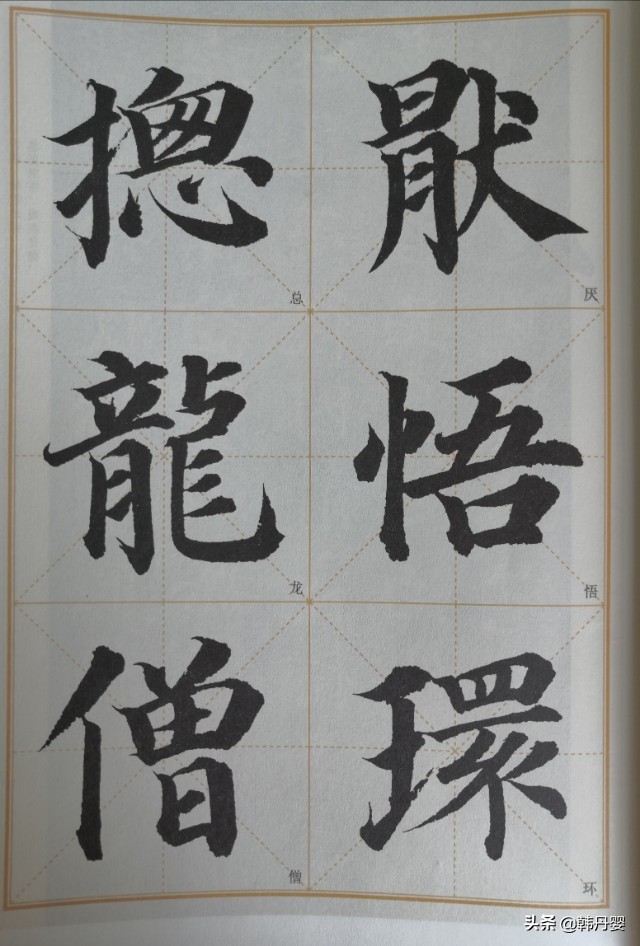 猒
厌
悟
悟
環
环
摠
总
龍
龙
僧
僧
头条 @韩丹婴